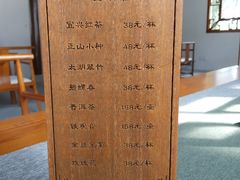 宜兴红茶 38元/杯
正山小种 48元/杯
太湖翠竹 48元/杯
碧螺春 38元/杯
普洱茶 168元/壶
铁观音 158元/壶
38元/杯
玫瑰花 38元/杯